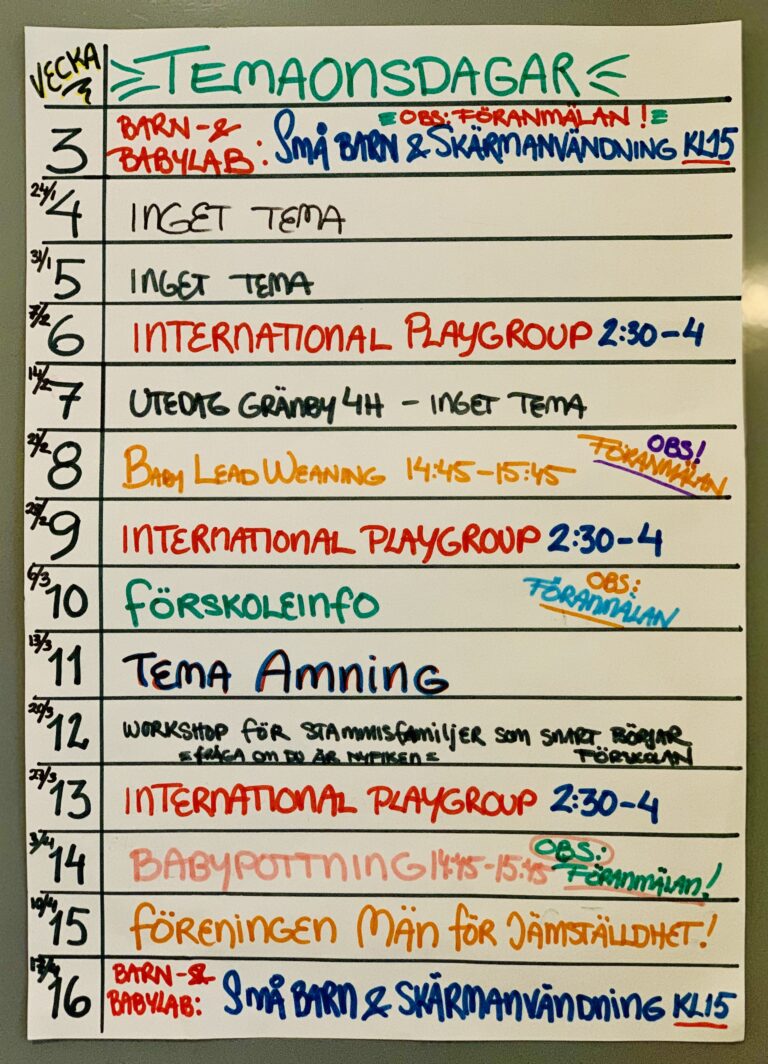 VECKA TEMAONSDAGAR
BARN-& OBS: FÖRANMÄLAN!
3 BABYLAB: SMÅ BARN & SKÄRMANVÄNDNING KL15
24/1
4 INGET TEMA
31/1
5 INGET TEMA
7/2
6 INTERNATIONAL PLAYGROUP 2:30-4
14/2
7 UTEDAG GRÄNBY 4H - INGET TEMA
21/2 OBS!
8 BABY LEAD WEANING 14:45-15:45 FÖRANMÄLAN
28/2
9 INTERNATIONAL PLAYGROUP 2:30-4
6/3 OBS:
10 FÖRSKOLEINFO FÖRANMÄLAN
13/3
11 TEMA AMNING
20/3
12 WORKSHOP FÖR STAMMISFAMILJER SOM SNART BÖRJAR
= FRÅGA OM DU ÄR NYFIKEN = FÖRSKOLAN
27/3
13 INTERNATIONAL PLAYGROUP 2:30-4
3/4 OBS:
14 BABYPOTTNING 14:45-15:45 FÖRANMÄLAN!
10/4
15 FÖRENINGEN MÄN FÖR JÄMSTÄLLDHET!
17/4 BARN-&
16 BABYLAB: SMÅ BARN & SKÄRMANVÄNDNING KL15